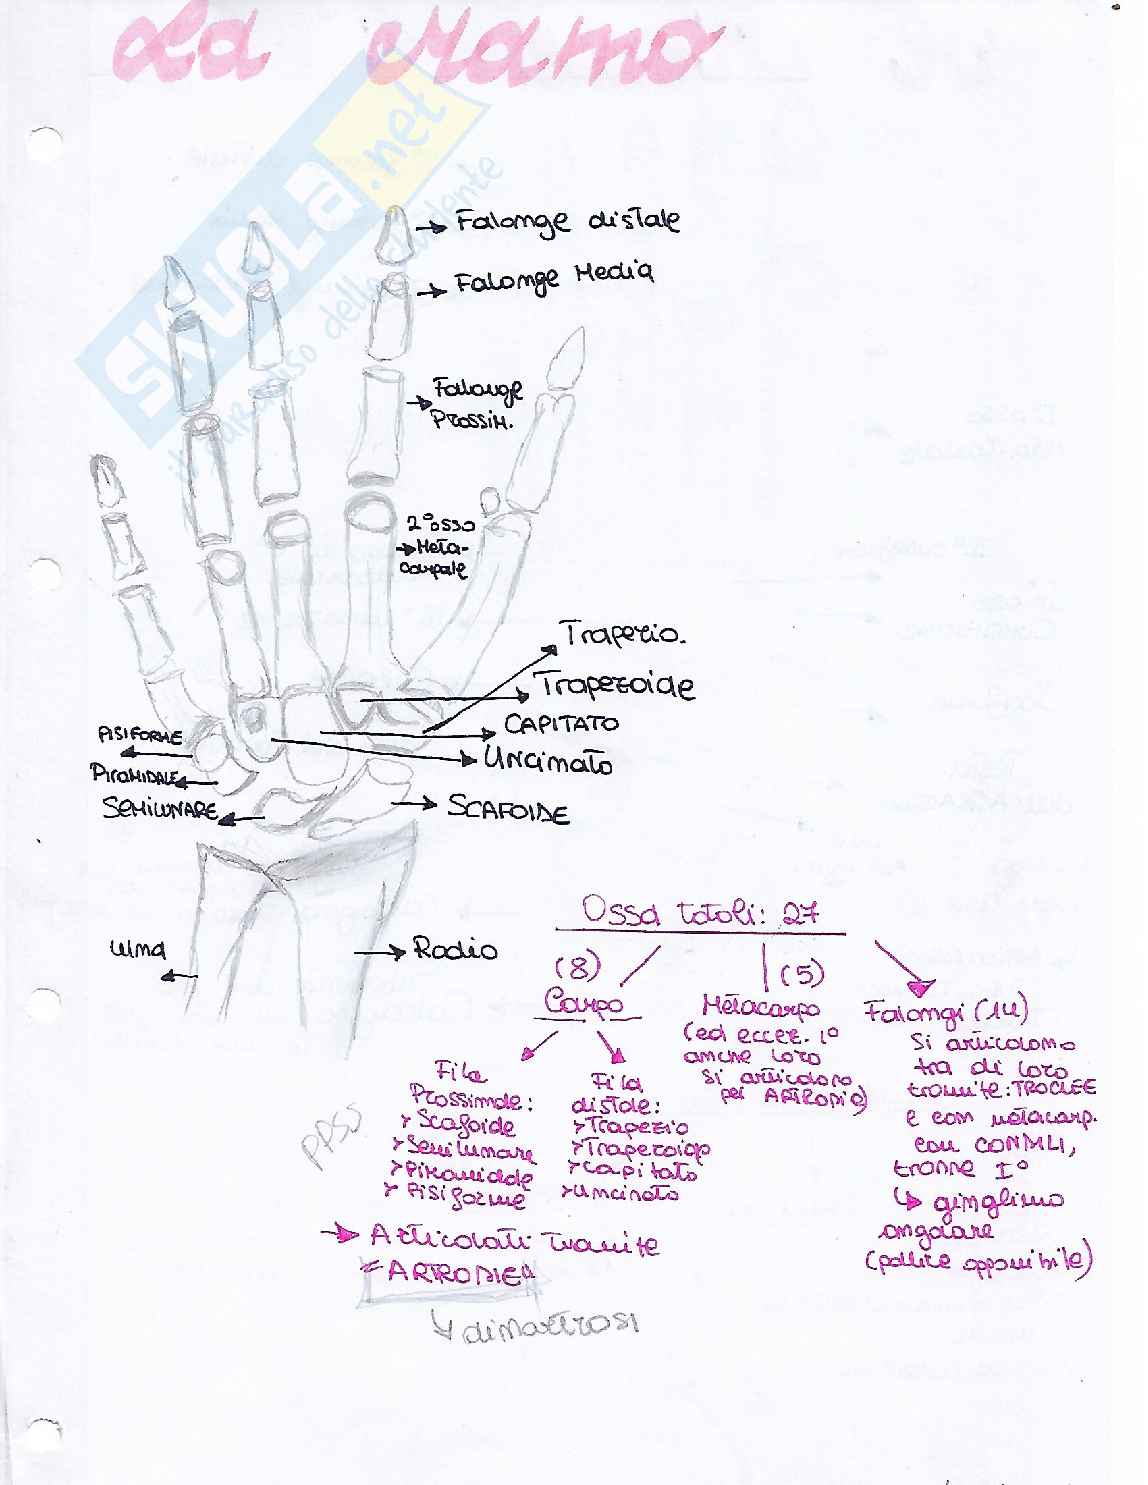 La mano
SKUOLA.net
il paradiso dello studente
Falange distale
Falange Media
Falange
Prossim.
2° osso
Meta-
carpale
Trapezio.
Trapezoide
CAPITATO
Uncinato
PISIFORME
PiramIDALE
SEMILUNARE
SCAFOIDE
ulna
Radio
Ossa totali: 27
(8)
Carpo
(5)
Metacarpo
(ad eccez. 1°
anche loro
si articolano
per ARTRODIE)
Falangi (14)
Si articolano
tra di loro
tramite: TROCLEE
e con metacarp.
con CONDILI,
tranne I°
↳ ginglimo
angolare
(pollice opponibile)
Fila
Prossimale:
> Scafoide
> Semilunare
> Piramidale
> Pisiforme
Fila
distale:
> Trapezio
> Trapezoide
> Capitato
> Uncinato
PPSS
→ Articolati tramite
= "ARTRODIE"
↳ diartrosi